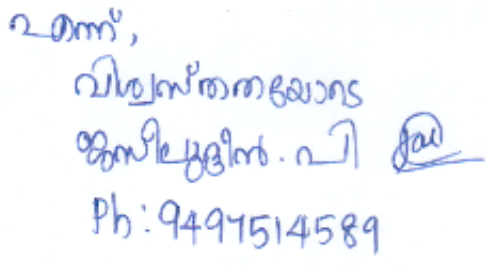 എന്ന്,
വിശ്വസ്തതയോടെ
ജസീലുദ്ദീൻ. പി
Ph: 9497514589